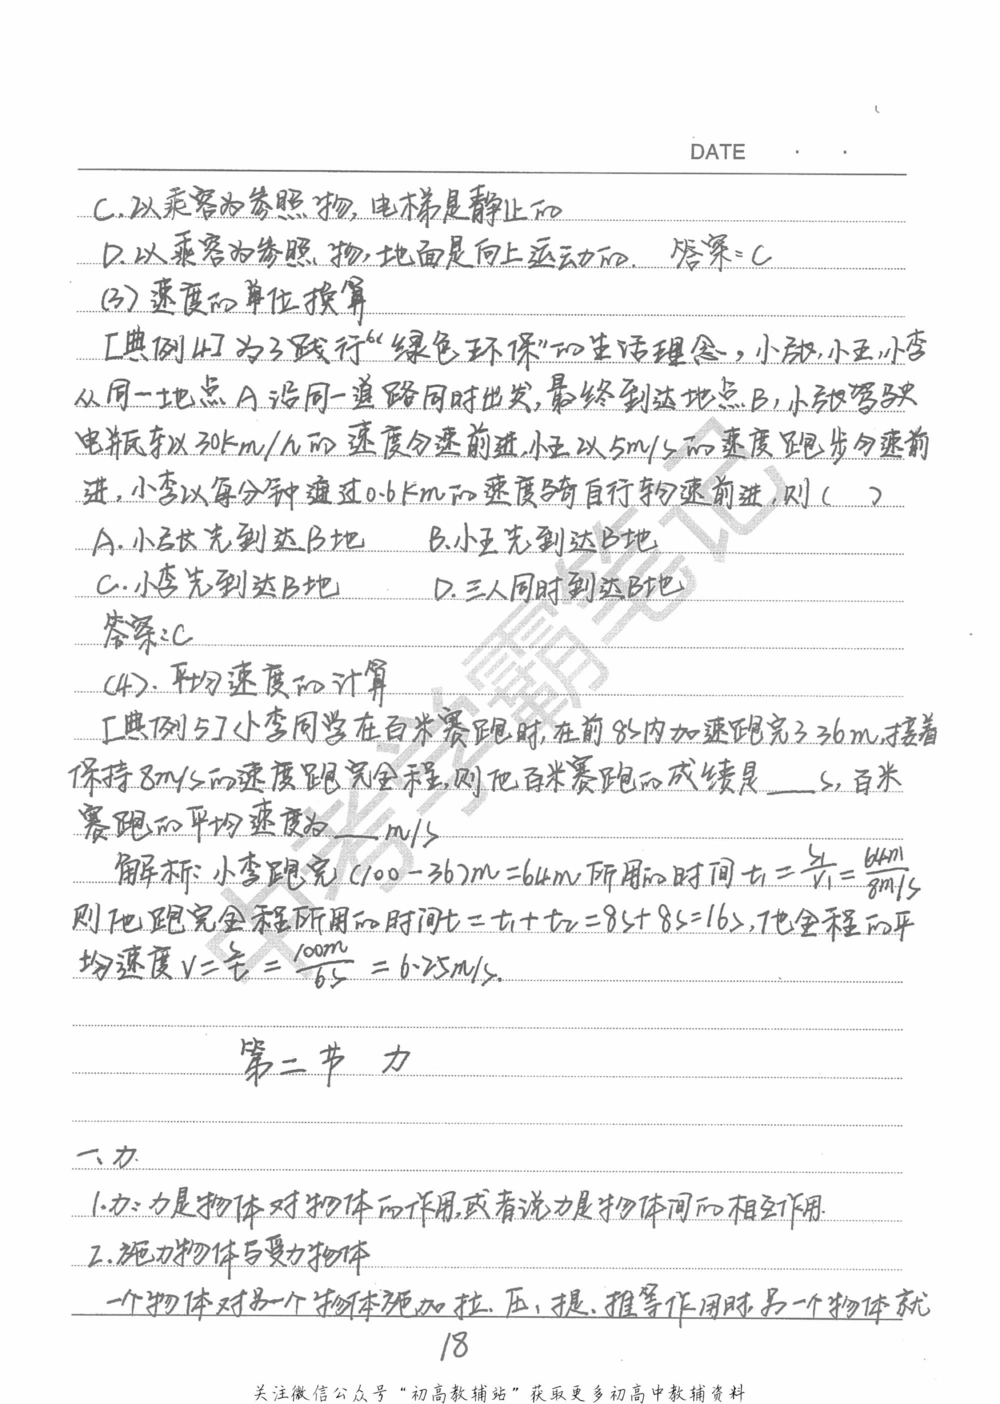 DATE · ·
C.以乘客为参照物,电梯是静止的
D.以乘客为参照物,地面是向上运动的. 答案:C
(3)速度的单位换算
[典例4]为了践行“绿色环保”的生活理念,小张,小王,小李
从同一地点A沿同一道路同时出发,最终到达地点B,小张驾驶
电瓶车以30km/h的速度匀速前进,小王以5m/s的速度跑步匀速前
进,小李以每分钟通过0.6km的速度骑自行车匀速前进,则( )
A.小张先到达B地 B.小王先到达B地
C.小李先到达B地 D.三人同时到达B地
答案:C
(4).平均速度的计算
[典例5]小李同学在百米赛跑时,在前8s内加速跑完了36m,接着
保持8m/s的速度跑完全程,则他百米赛跑的成绩是___s,百米
赛跑的平均速度为___m/s
解析:小李跑完(100-36)m=64m所用的时间t₁=s₁/v₁=64m/8m/s
则他跑完全程所用的时间t=t₁+t₂=8s+8s=16s,他全程的平
均速度v=s/t=100m/16s=6.25m/s.
第二节 力
一、力.
1.力:力是物体对物体的作用,或者说力是物体间的相互作用.
2.施力物体与受力物体
一个物体对另一个物体施加拉、压、提、推等作用时,另一个物体就
18
关注微信公众号“初高教辅站”获取更多初高中教辅资料
中考学霸笔记